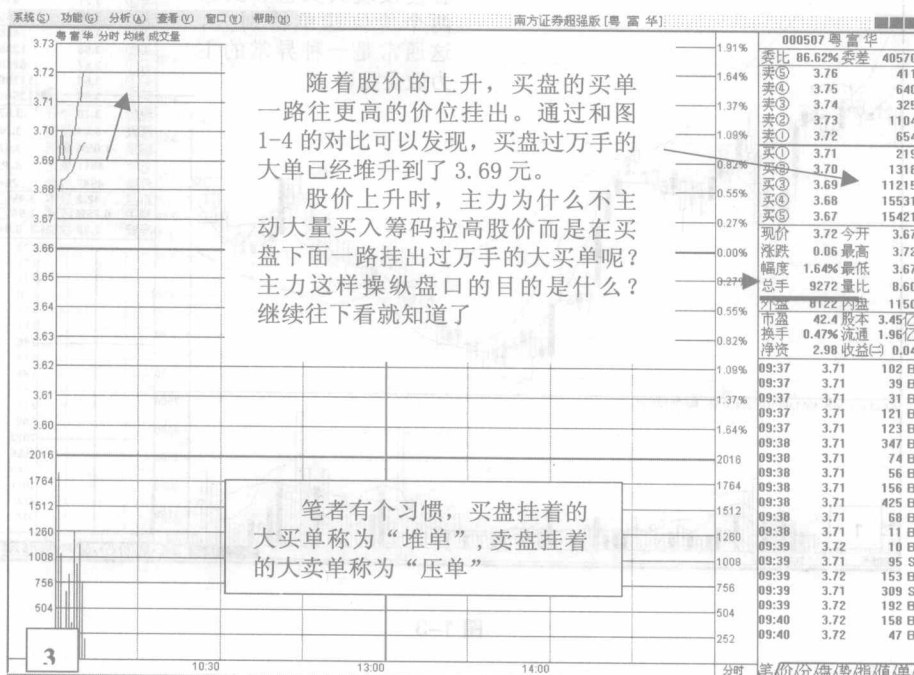 系统(S) 功能(G) 分析(A) 查看(V) 窗口(W) 帮助(H) 南方证券超强版[粤 富 华]
粤 富 华 分时 均线 成交量
3.73
3.72
3.71
3.70
3.69
3.68
3.67
3.66
3.65
3.64
3.63
3.62
3.61
3.60
2016
1764
1512
1260
1008
756
504
随着股价的上升，买盘的买单
一路往更高的价位挂出。通过和图
1-4 的对比可以发现，买盘过万手的
大单已经堆升到了 3.69 元。
股价上升时，主力为什么不主
动大量买入筹码拉高股价而是在买
盘下面一路挂出过万手的大买单呢？
主力这样操纵盘口的目的是什么？
继续往下看就知道了
笔者有个习惯，买盘挂着的
大买单称为“堆单”，卖盘挂着
的大卖单称为“压单”
3
10:30 13:00 14:00
1.91%
1.64%
1.37%
1.09%
0.82%
0.55%
0.27%
0.00%
0.27%
0.55%
0.82%
1.09%
1.37%
1.64%
2016
1764
1512
1260
1008
756
504
252
分时
000507 粤 富 华
委比 86.62% 委差 40570
卖⑤ 3.76 411
卖④ 3.75 640
卖③ 3.74 325
卖② 3.73 1104
卖① 3.72 654
买① 3.71 219
买② 3.70 1318
买③ 3.69 11215
买④ 3.68 15531
买⑤ 3.67 15421
现价 3.72 今开 3.67
涨跌 0.06 最高 3.72
幅度 1.64% 最低 3.67
总手 9272 量比 8.60
外盘 8122 内盘 1150
市盈 42.4 股本 3.45亿
换手 0.47% 流通 1.96亿
净资 2.98 收益㈡ 0.04
09:37 3.71 102 B
09:37 3.71 39 B
09:37 3.71 31 B
09:37 3.71 121 B
09:37 3.71 123 B
09:38 3.71 347 B
09:38 3.71 74 B
09:38 3.71 56 B
09:38 3.71 156 B
09:38 3.71 425 B
09:38 3.71 68 B
09:38 3.71 11 B
09:39 3.72 10 B
09:39 3.71 95 S
09:39 3.72 153 B
09:39 3.71 309 S
09:39 3.72 192 B
09:40 3.72 158 B
09:40 3.72 47 B
笔/价/分/盘/势/指/值/单